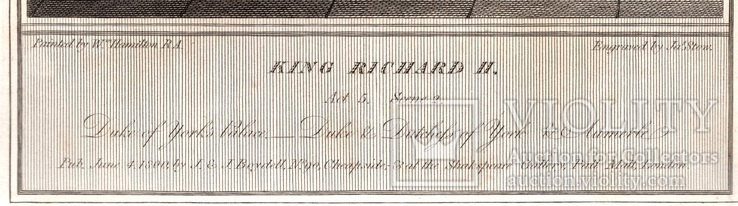 Painted by Wm. Hamilton R.A.
Engraved by Jas. Stow.
KING RICHARD II.
Act 5. Scene 2.
Duke of York's Palace. — Duke & Dutchess of York & Aumerle.
Pub. June 4, 1800, by J. & J. Boydell, No. 90, Cheapside; & at the Shakspeare Gallery, Pall Mall, London.
VIOLITY
Auction for Collectors
auction.violity.com